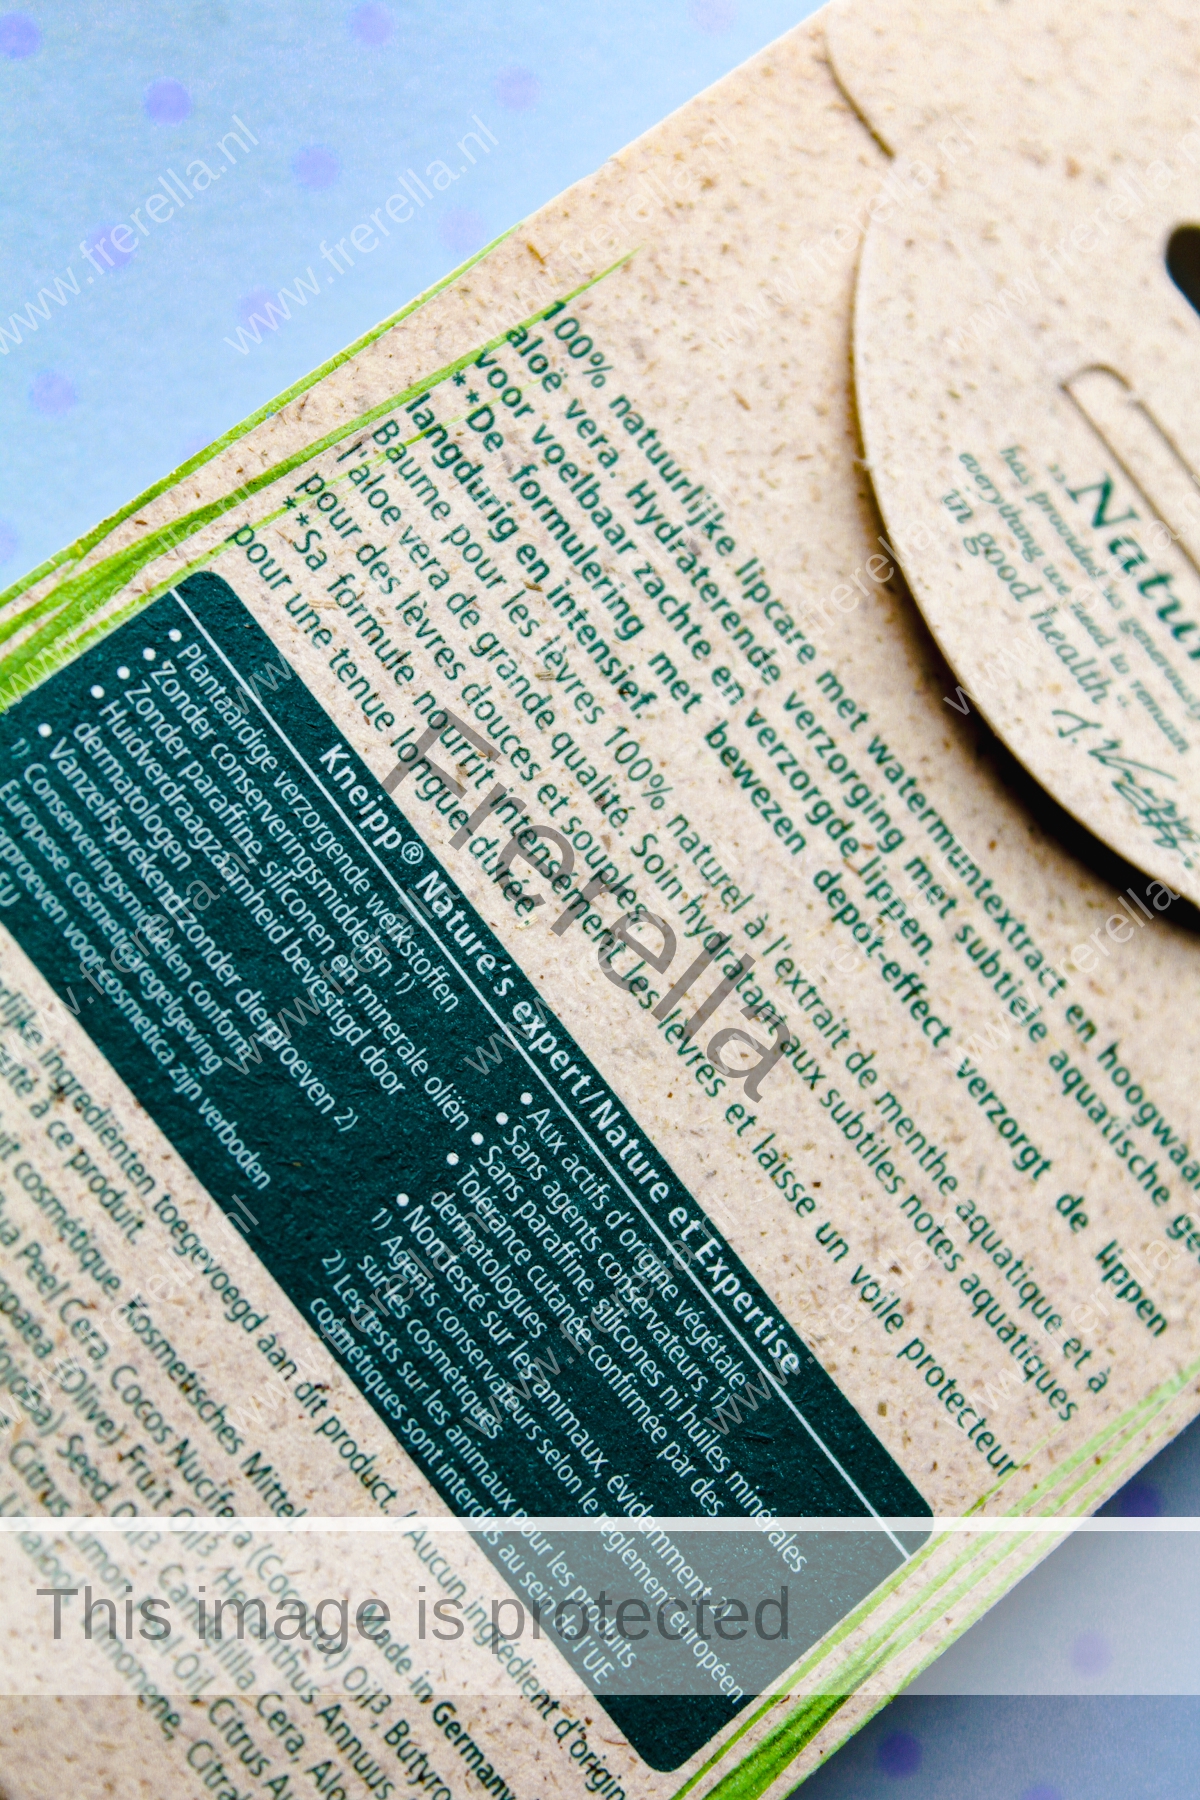 „Natur
has provided us generously
everything we need to remain
in good health"
100% natuurlijke lipcare met watermuntextract en hoogwaa
aloë vera. Hydraterende verzorging met subtiele aquatische ge
voor voelbaar zachte en verzorgde lippen.
**De formulering met bewezen depot-effect verzorgt de lippen
langdurig en intensief.
Baume pour les lèvres 100% naturel à l'extrait de menthe aquatique et à
l'aloe vera de grande qualité. Soin hydratant aux subtiles notes aquatiques
pour des lèvres douces et souples.
**Sa formule nourrit intensément les lèvres et laisse un voile protecteur
pour une tenue longue durée.
Kneipp® Nature's expert/Nature et Expertise
• Plantaardige verzorgende werkstoffen
• Zonder conserveringsmiddelen 1)
• Zonder paraffine, siliconen en minerale oliën
• Huidverdraagzaamheid bevestigd door
dermatologen
• Vanzelfsprekend zonder dierproeven 2)
1) Conserveringsmiddelen conform
Europese cosmeticaregelgeving
proeven voor cosmetica zijn verboden
EU
• Aux actifs d'origine végétale
• Sans agents conservateurs 1)
• Sans paraffine, silicones ni huiles minérales
• Tolérance cutanée confirmée par des
dermatologues
• Non testé sur les animaux, évidemment 2)
1) Agents conservateurs selon le règlement européen
sur les cosmétiques
2) Les tests sur les animaux pour les produits
cosmétiques sont interdits au sein de l'UE
rlijke ingrediënten toegevoegd aan dit product. / Aucun ingrédient d'origin
sité à ce produit.
uit cosmétique. Kosmetisches Mittel. Made in Germany
Peel Cera, Cocos Nucifera (Coconut) Oil3, Butyro
paea (Olive) Fruit Oil3, Helianthus Annuus
Seed Oil3, Candelilla Cera, Aloe
Citrus Limon Peel Oil, Citrus Au
Linalool, Limonene, Citral
Frerella
www.frerella.nl
This image is protected